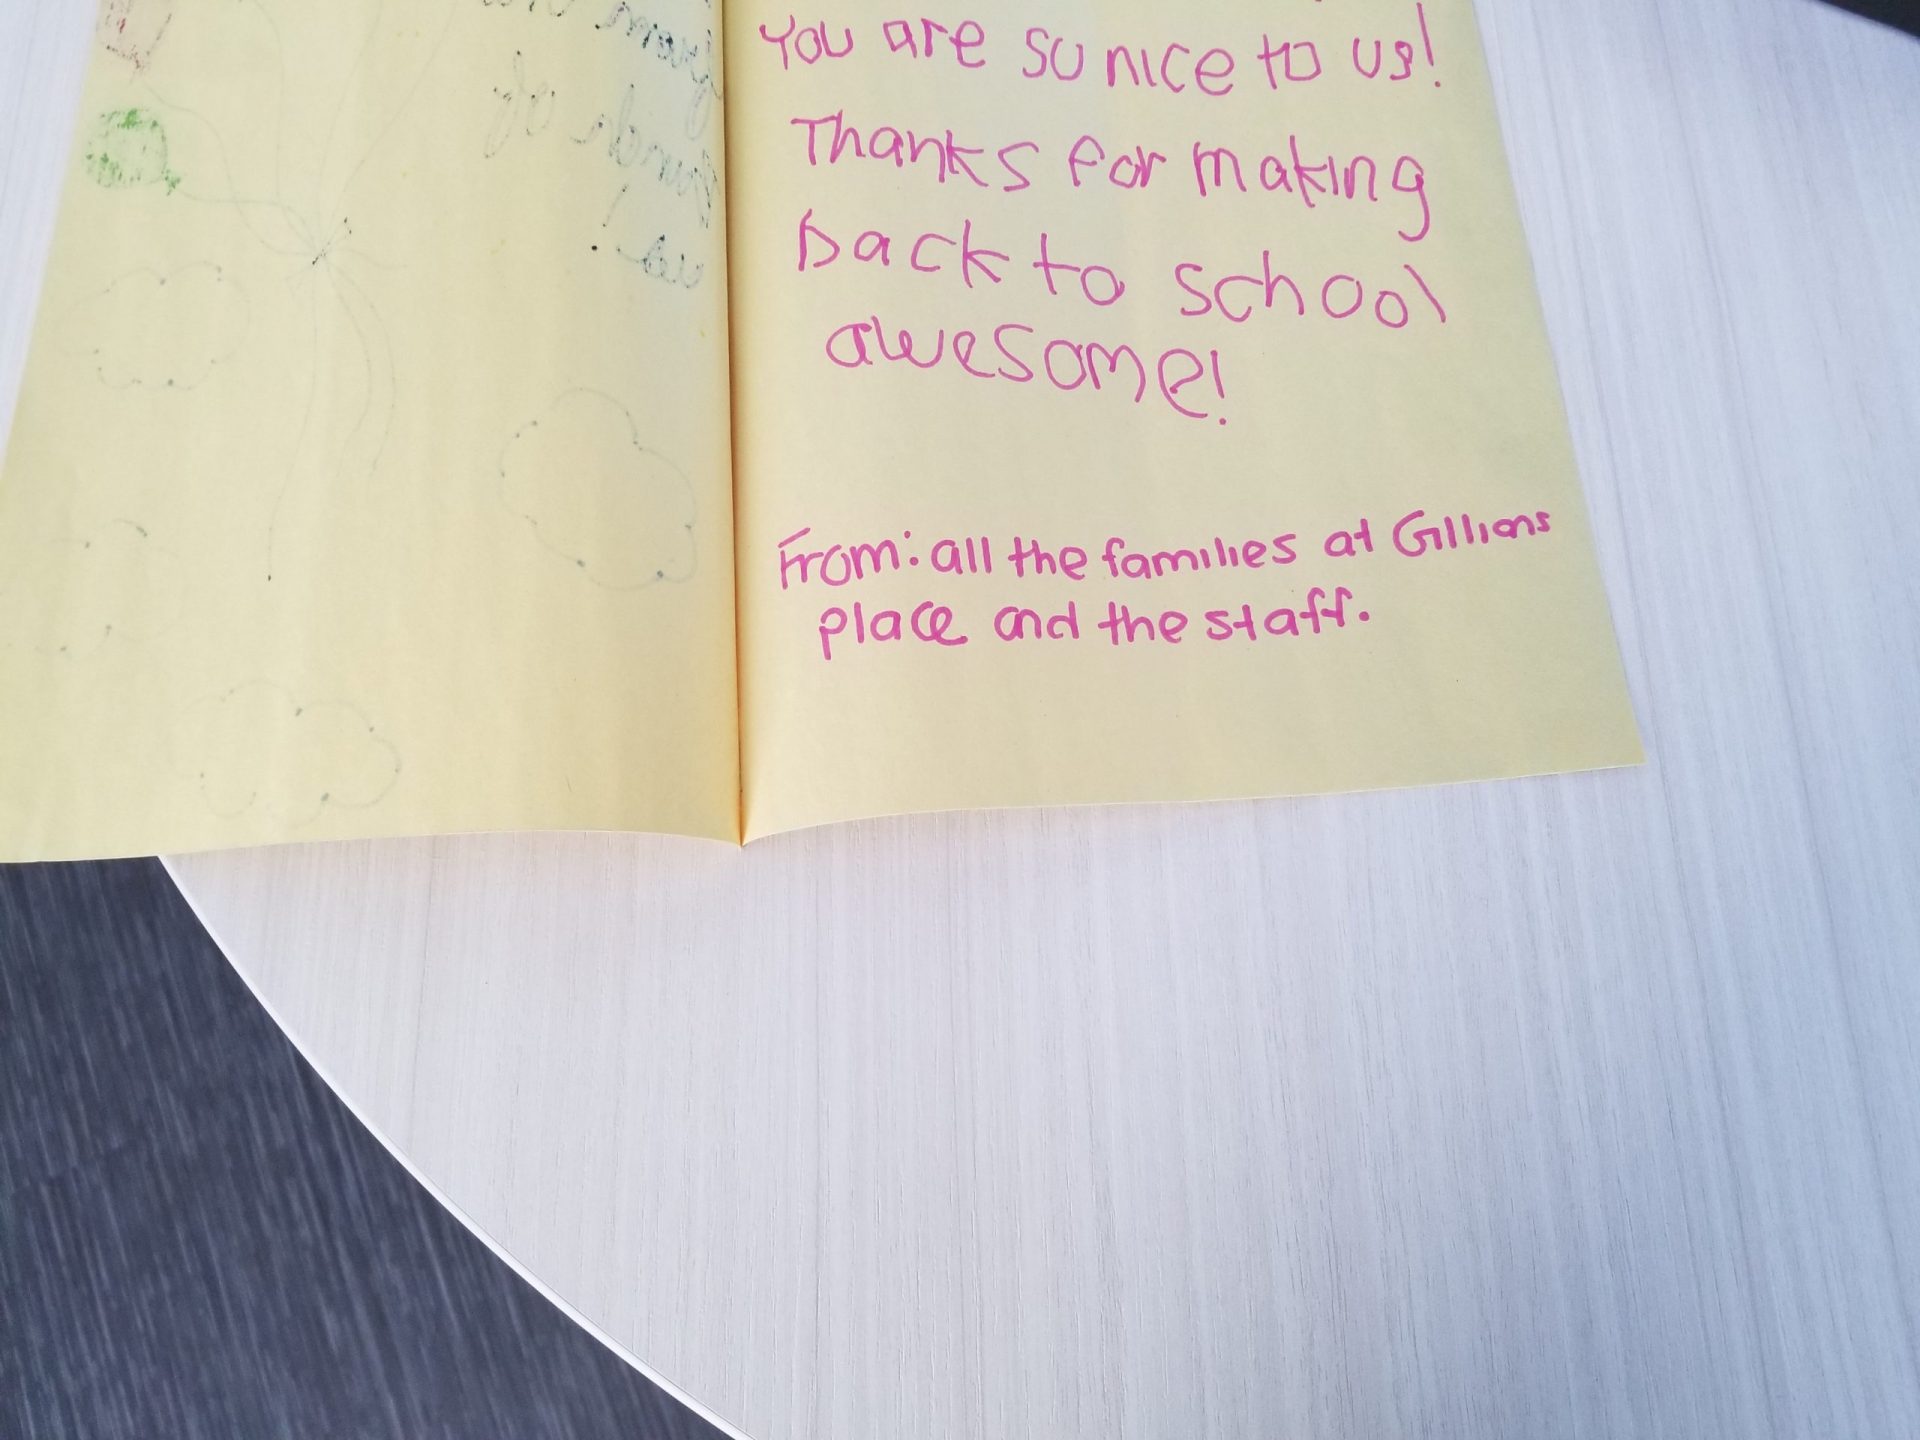 You are su nice to us!
Thanks for making
back to school
awesome!
From: all the families at Gillians
place and the staff.
of
us!